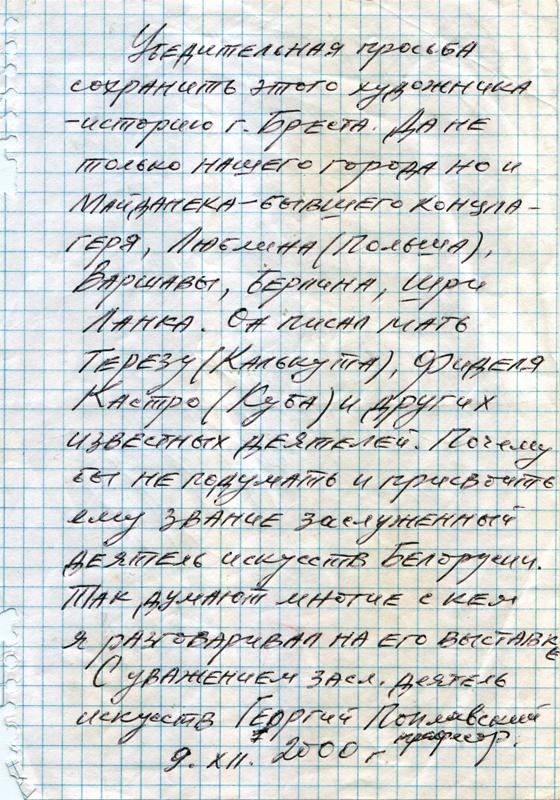 Убедительная просьба
сохранить этого художника
-историю г. Бреста. Да не
только нашего города но и
Майданека-бывшего концла-
геря, Люблина (Польша),
Варшавы, Берлина, Шри
Ланка. Он писал мать
Терезу (Калькута), Фиделя
Кастро (Куба) и других
известных деятелей. Почему
бы не подумать и присвоить
ему звание заслуженный
деятель искусств Белорусии.
Так думают многие с кем
я разговаривал на его выставке
С уважением засл. деятель
искусств Георгий Поплавский
профессор.
9. XII. 2000 г.